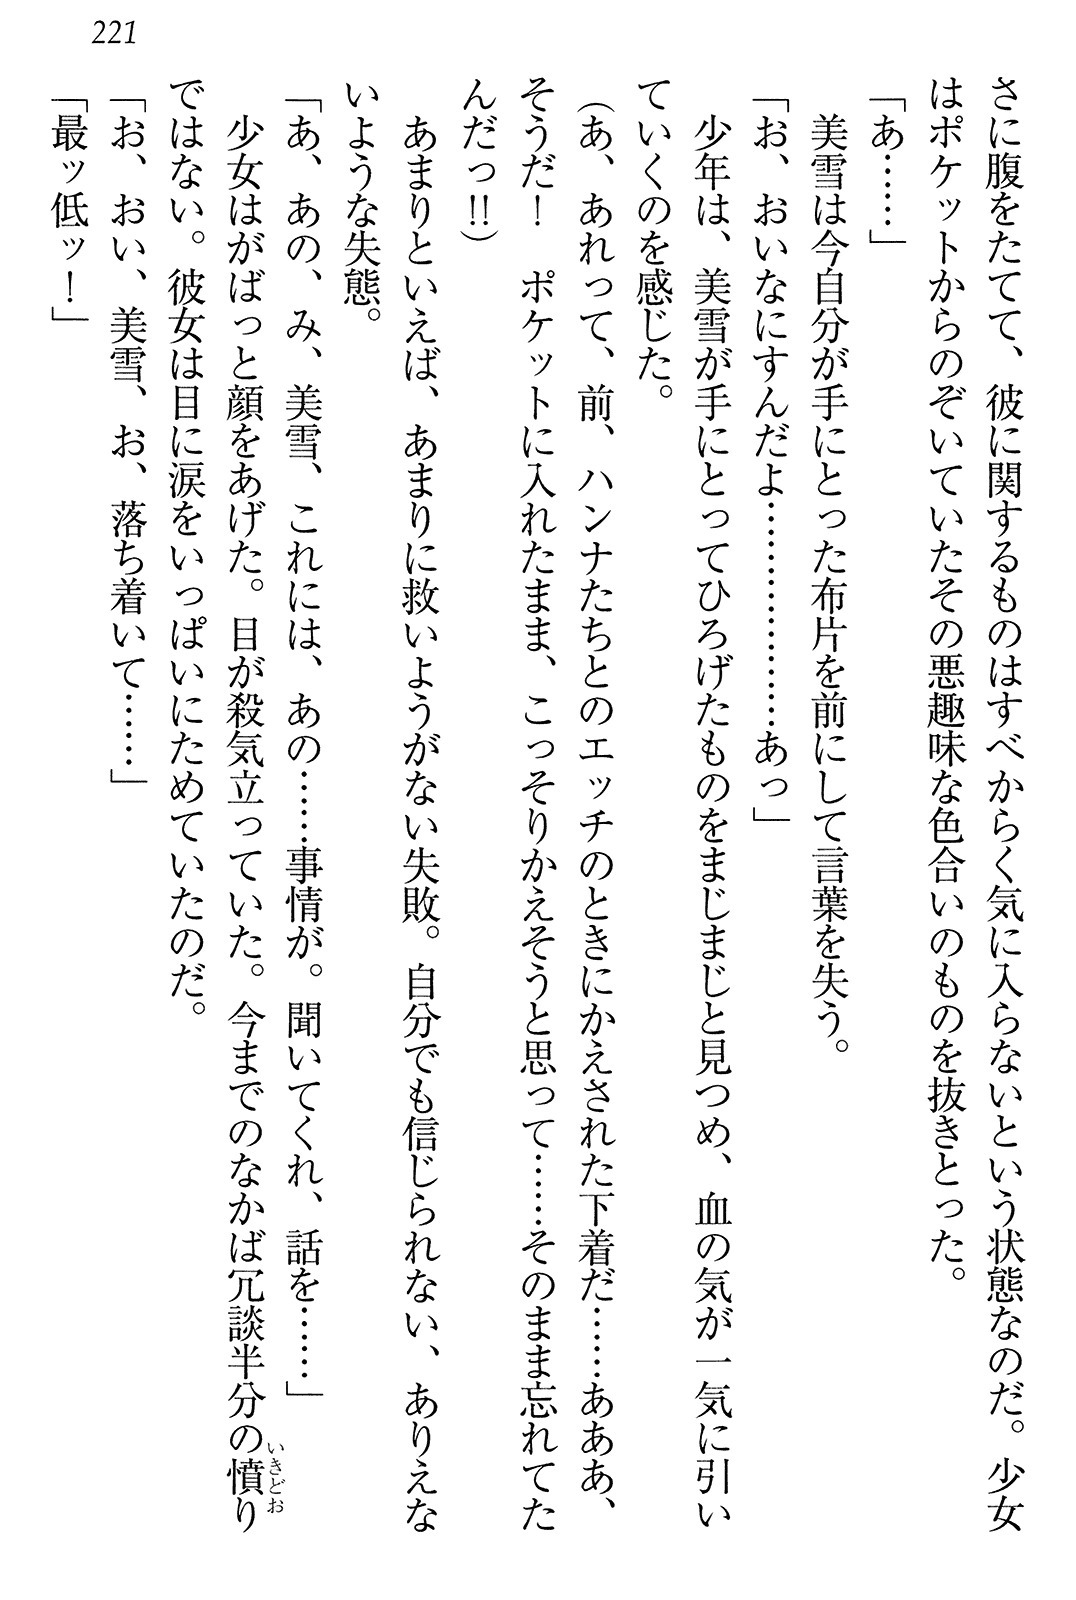 221
さに腹をたてて、彼に関するものはすべからく気に入らないという状態なのだ。少女
はポケットからのぞいていたその悪趣味な色合いのものを抜きとった。
「あ……」
美雪は今自分が手にとった布片を前にして言葉を失う。
「お、おいなにすんだよ………………あっ」
少年は、美雪が手にとってひろげたものをまじまじと見つめ、血の気が一気に引い
ていくのを感じた。
（あ、あれって、前、ハンナたちとのエッチのときにかえされた下着だ……あああ、
そうだ！　ポケットに入れたまま、こっそりかえそうと思って……そのまま忘れてた
んだっ!!）
あまりといえば、あまりに救いようがない失敗。自分でも信じられない、ありえな
いような失態。
「あ、あの、み、美雪、これには、あの……事情が。聞いてくれ、話を……」
少女はがばっと顔をあげた。目が殺気立っていた。今までのなかば冗談半分の憤り
いきどお
ではない。彼女は目に涙をいっぱいにためていたのだ。
「お、おい、美雪、お、落ち着いて……」
「最ッ低ッ！」